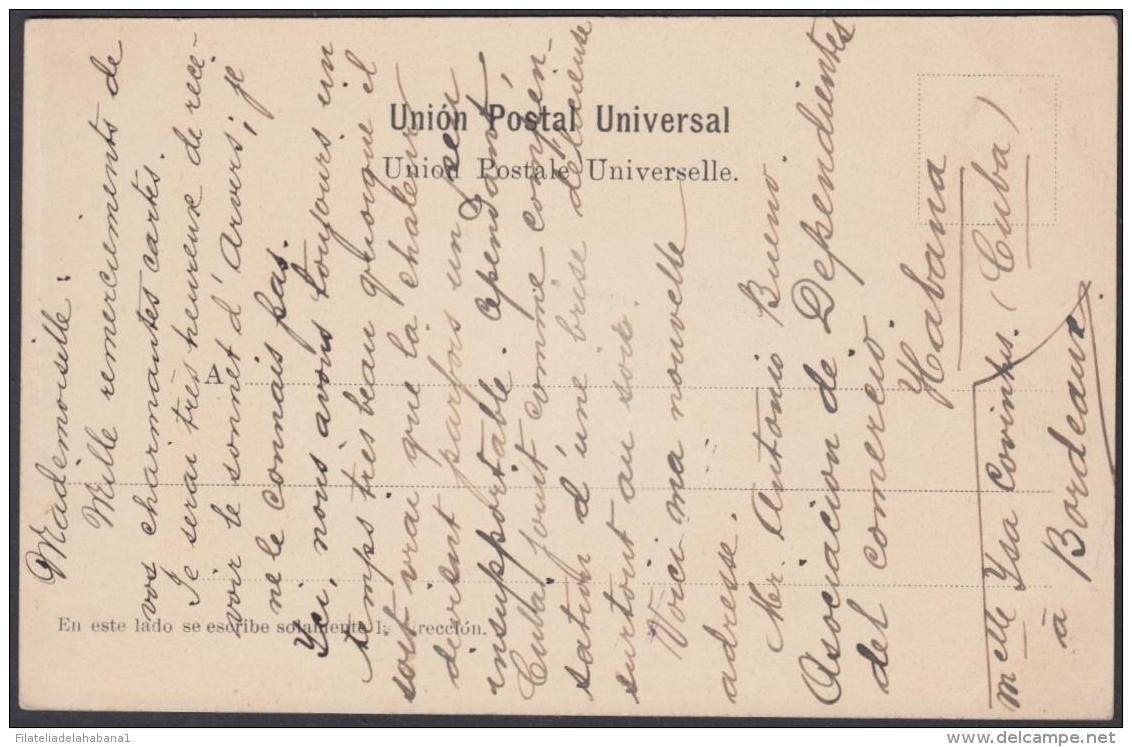 Unión Postal Universal
Union Postale Universelle.
A
En este lado se escribe solamente la dirección.
Mademoiselle:
Mille remerciements de
vos charmantes cartes.
Je serai très heureux de rece-
voir le sonnet d'Arvers; je
ne le connais pas.
Yci, nous avons toujours un
temps très beau quoique il
soit vrai que la chaleur
devient parfois un peu
insupportable. Cependant
Cuba jouit comme compen-
sation d'une brise délicieuse
surtout au soir.
Voici ma nouvelle
adresse.
Mr. Antonio Bueno
Asociacion de Dependientes
del comercio
Habana
(Cuba)
Melle Ysa Corintus.
à Bordeaux
FilateliadelaHabana1
www.delcampe.net